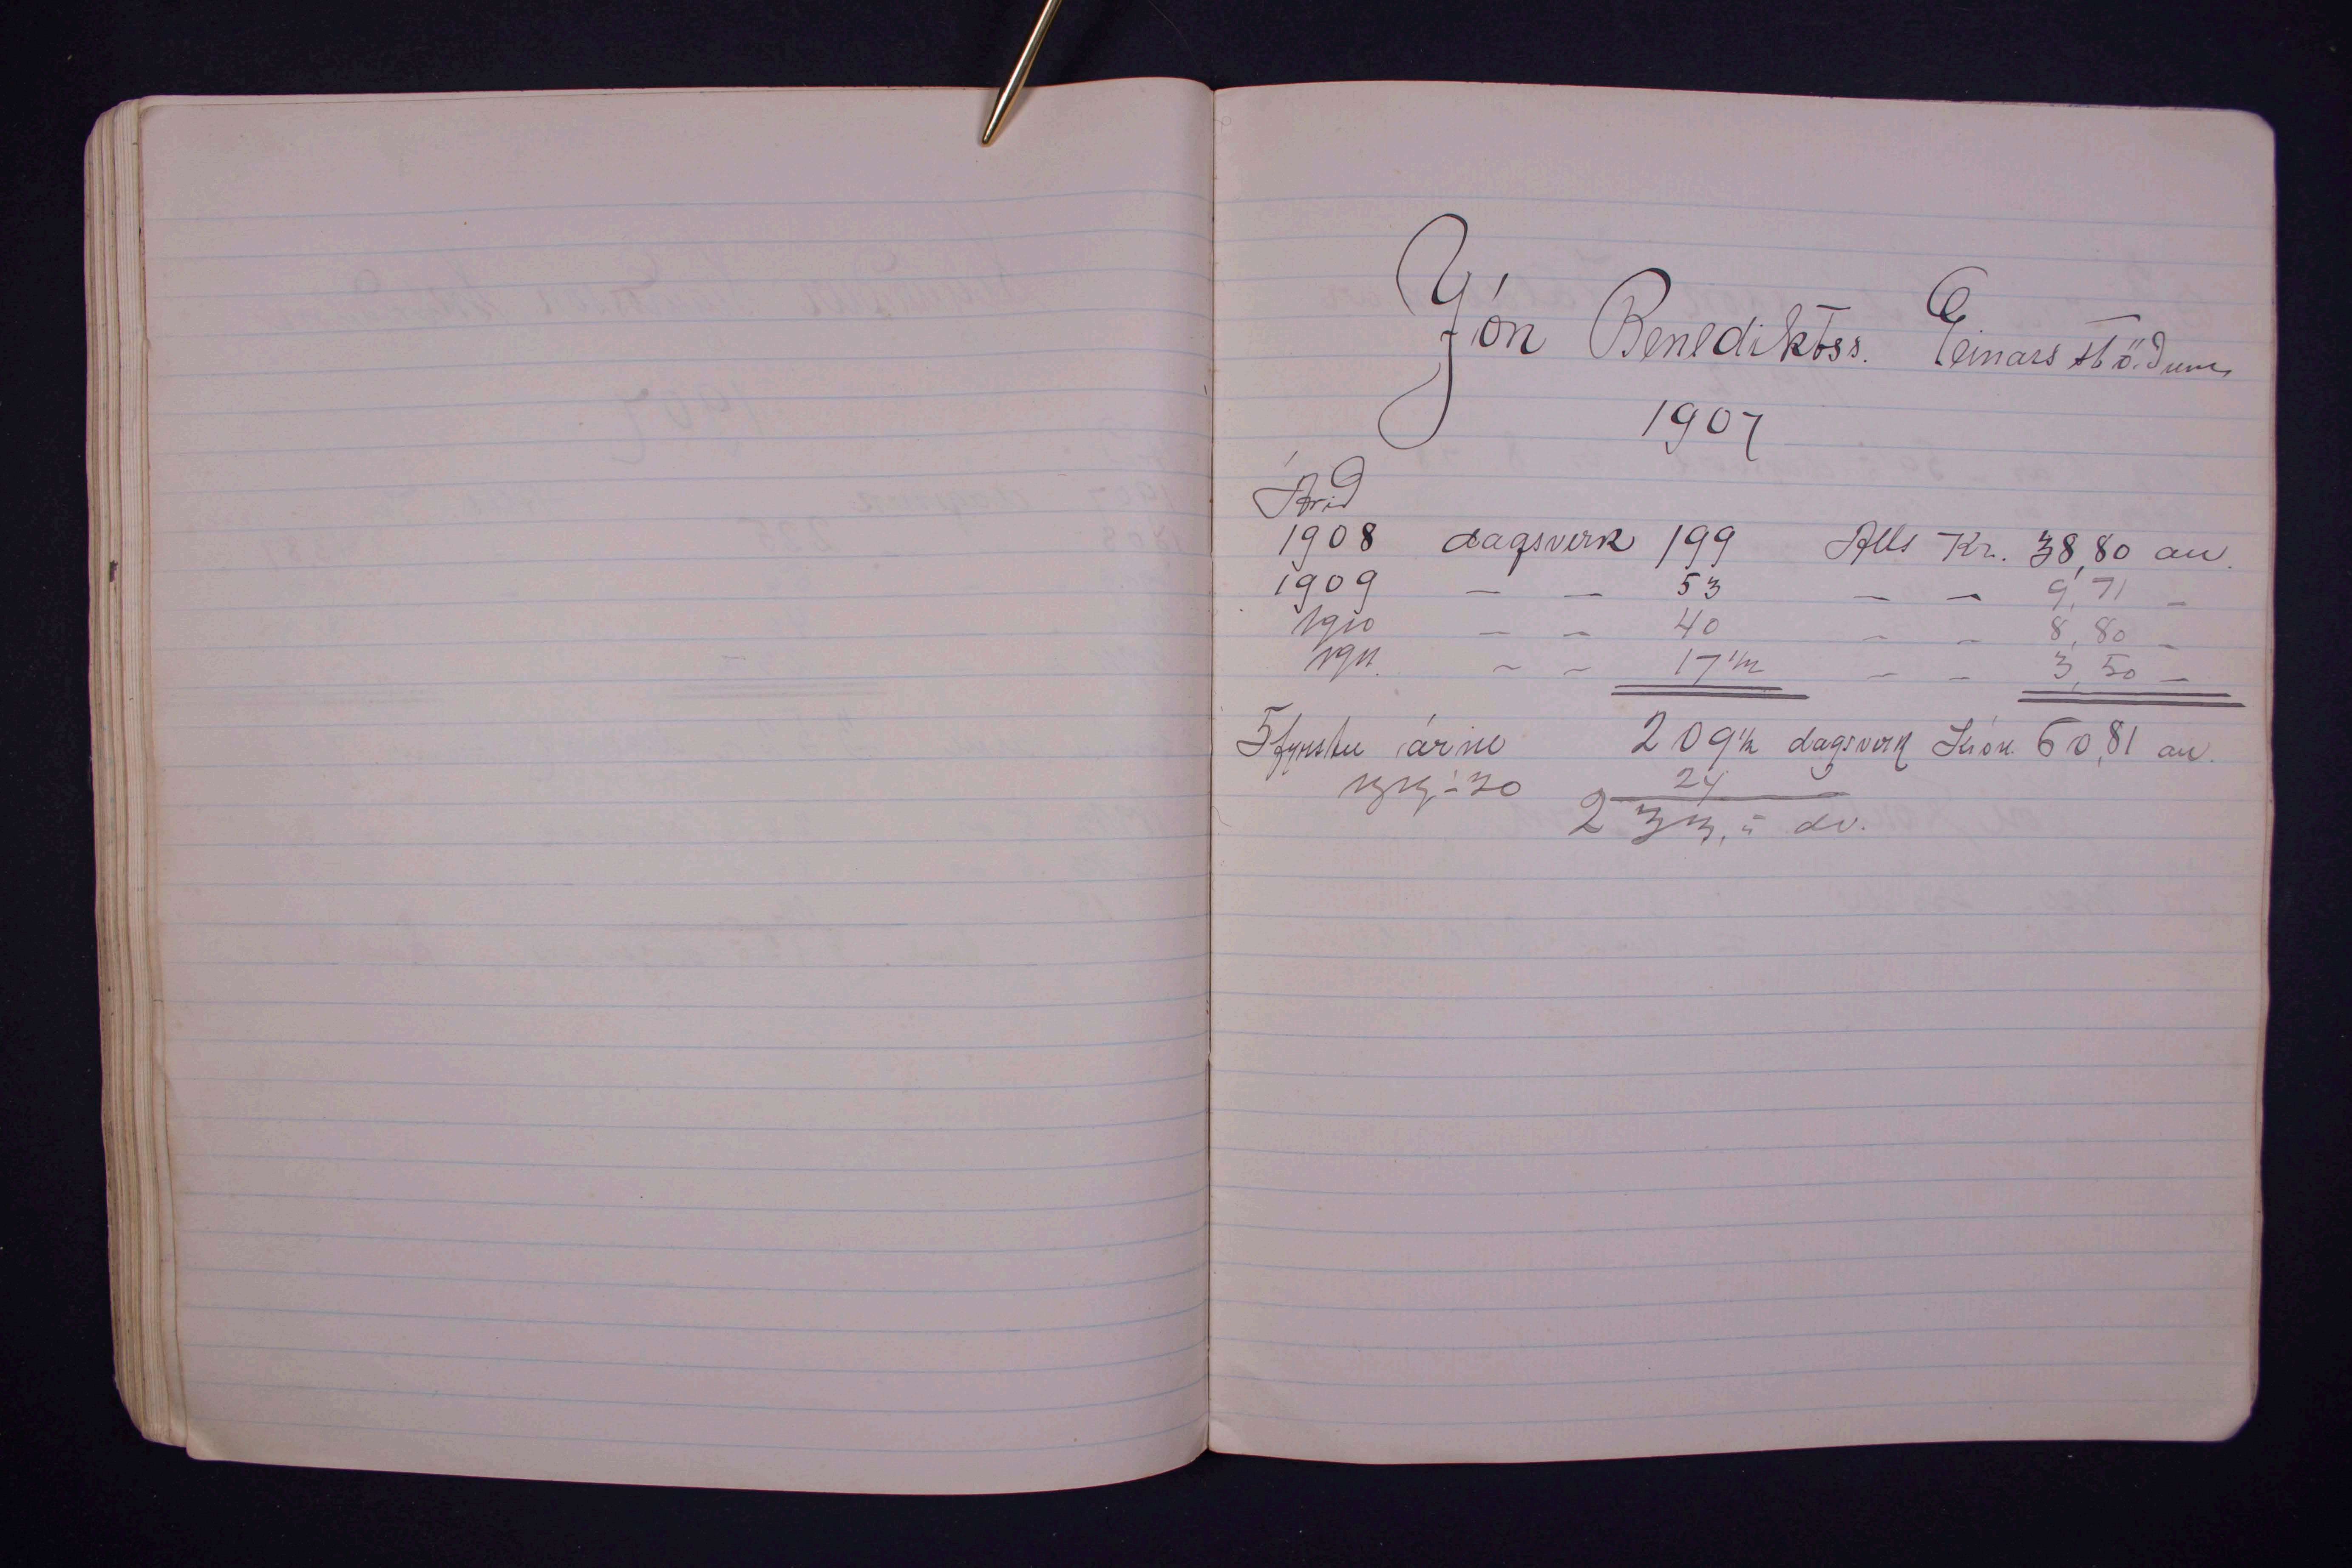 Jón Benediktss. Einarsstöðum
1907
Árið
1908 dagsverk 199 Alls Kr. 38,80 au.
1909 — — 53 — — 9,71 —
1910 — — 40 — — 8,80 —
1911. — — 17 1/2 — — 3,50 —
5 fyrstu árin 209 1/2 dagsverk Krón. 60,81 au.
24
233,5 dv.